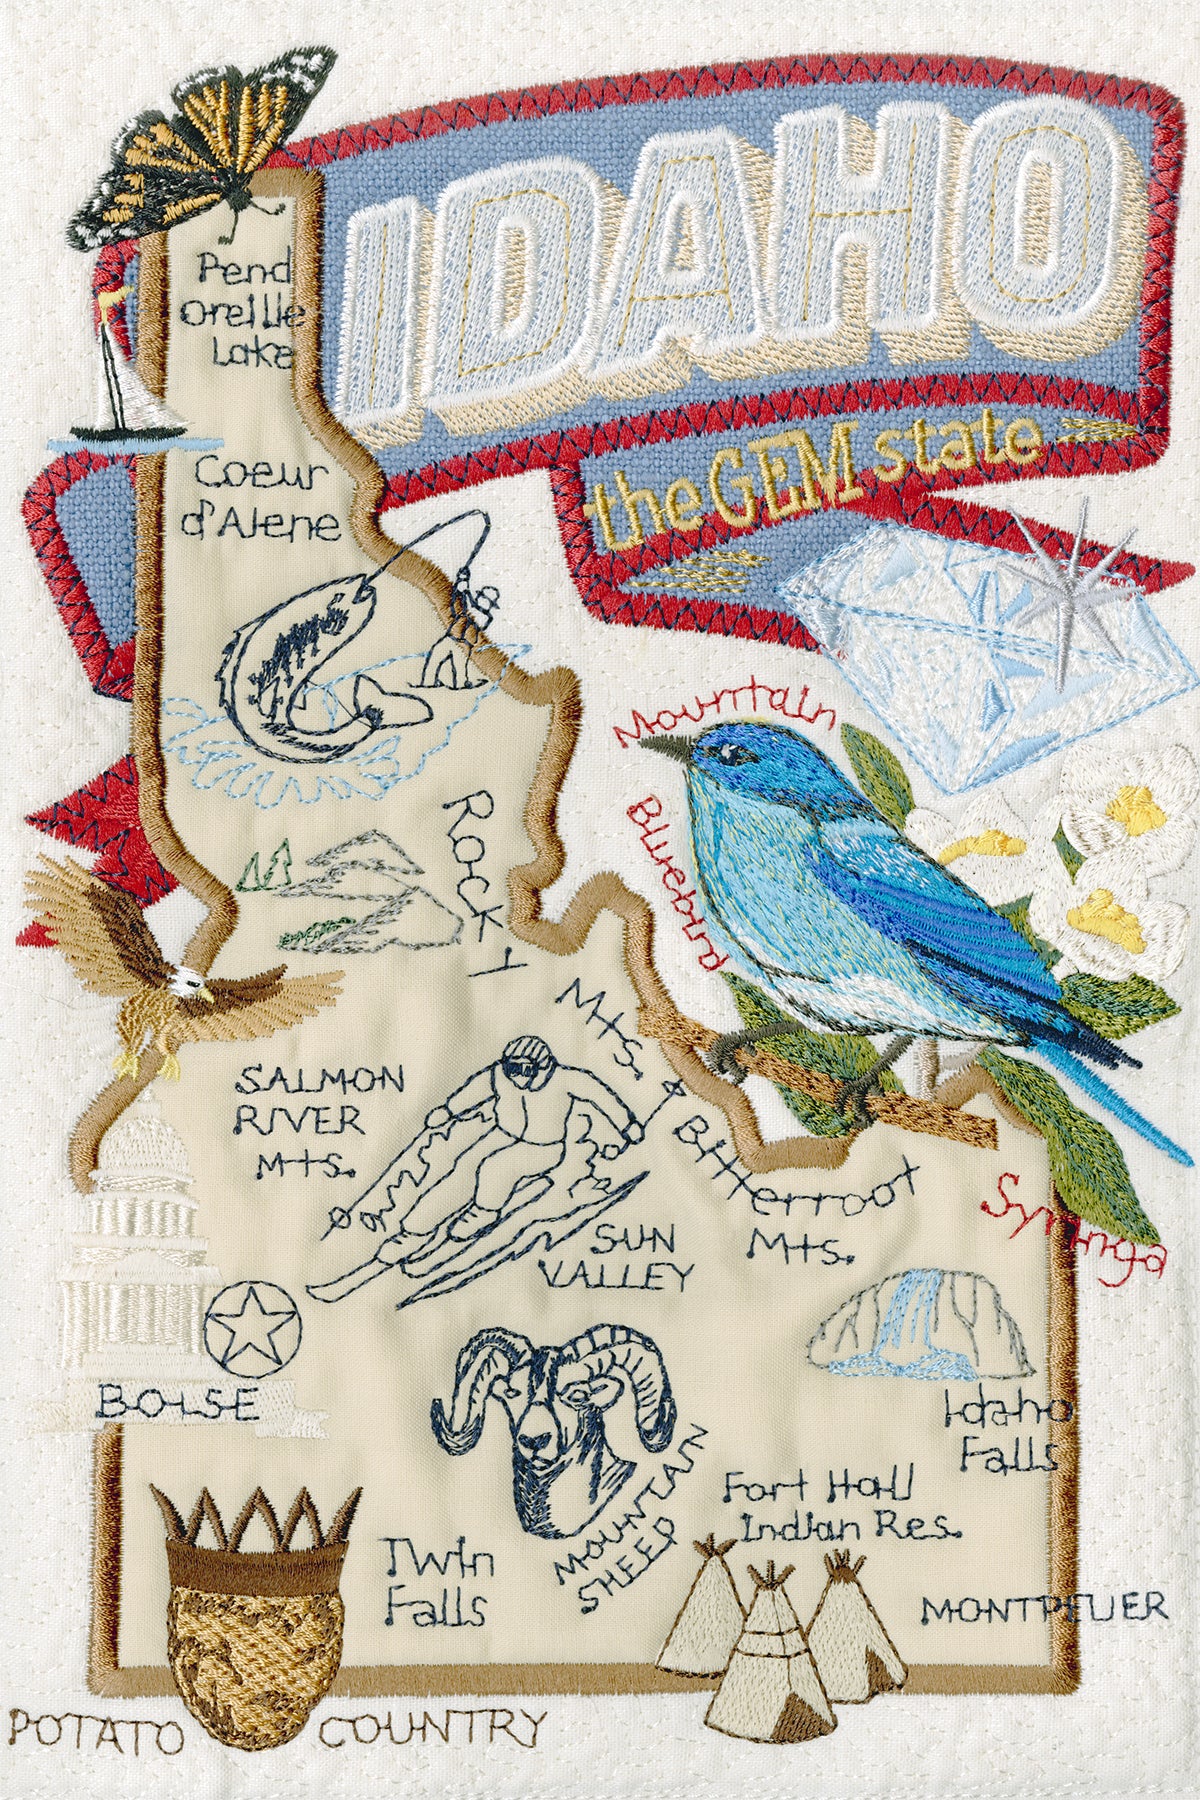 IDAHO
the GEM state
Pend
Oreille
Lake
Coeur
d'Alene
Mountain
Bluebird
ROCKY
Mts.
SALMON
RIVER
Mts.
Bitterroot
Mts.
SUN
VALLEY
Syringa
BOISE
Idaho
Falls
MOUNTAIN
SHEEP
Fort Hall
Indian Res.
Twin
Falls
MONTPELIER
POTATO COUNTRY